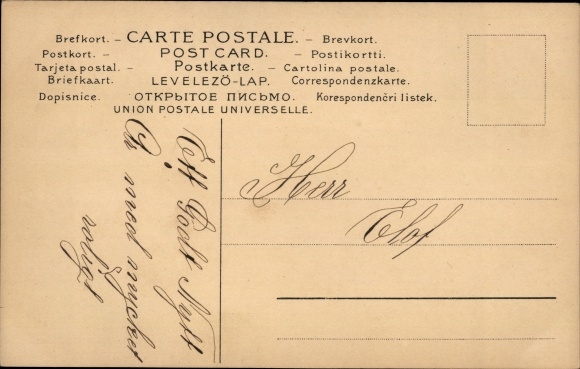 Brefkort. – CARTE POSTALE. – Brevkort.
Postkort. – POST CARD. – Postikortti.
Tarjeta postal. – Postkarte. – Cartolina postale.
Briefkaart. LEVELEZÖ-LAP. Correspondenzkarte.
Dopisnice. ОТКРЫТОЕ ПИСЬМО. Korespondenčri listek.
UNION POSTALE UNIVERSELLE.
Ett Godt Nytt
År med mycket
roligt
Herr
Elof